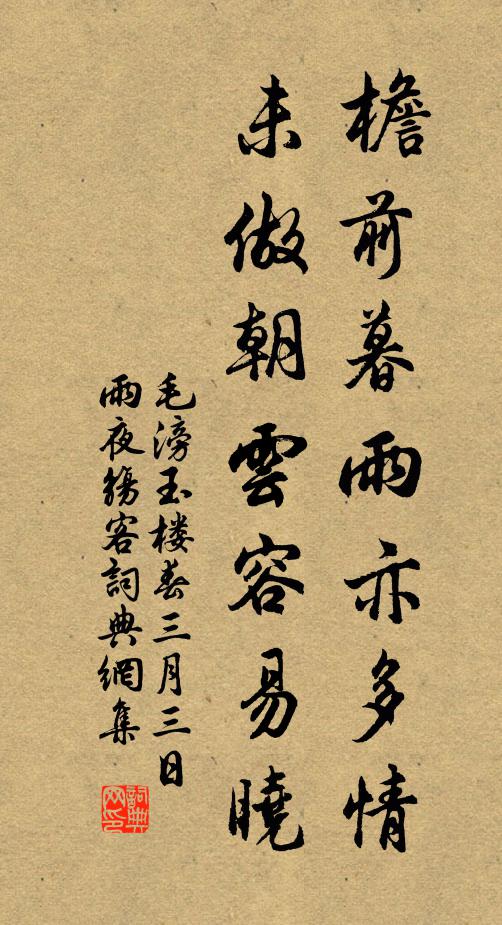 檐前暮雨亦多情
未做朝雲容易曉
毛滂玉楼春三月三日
雨夜觴客詞典網集
詞典网印